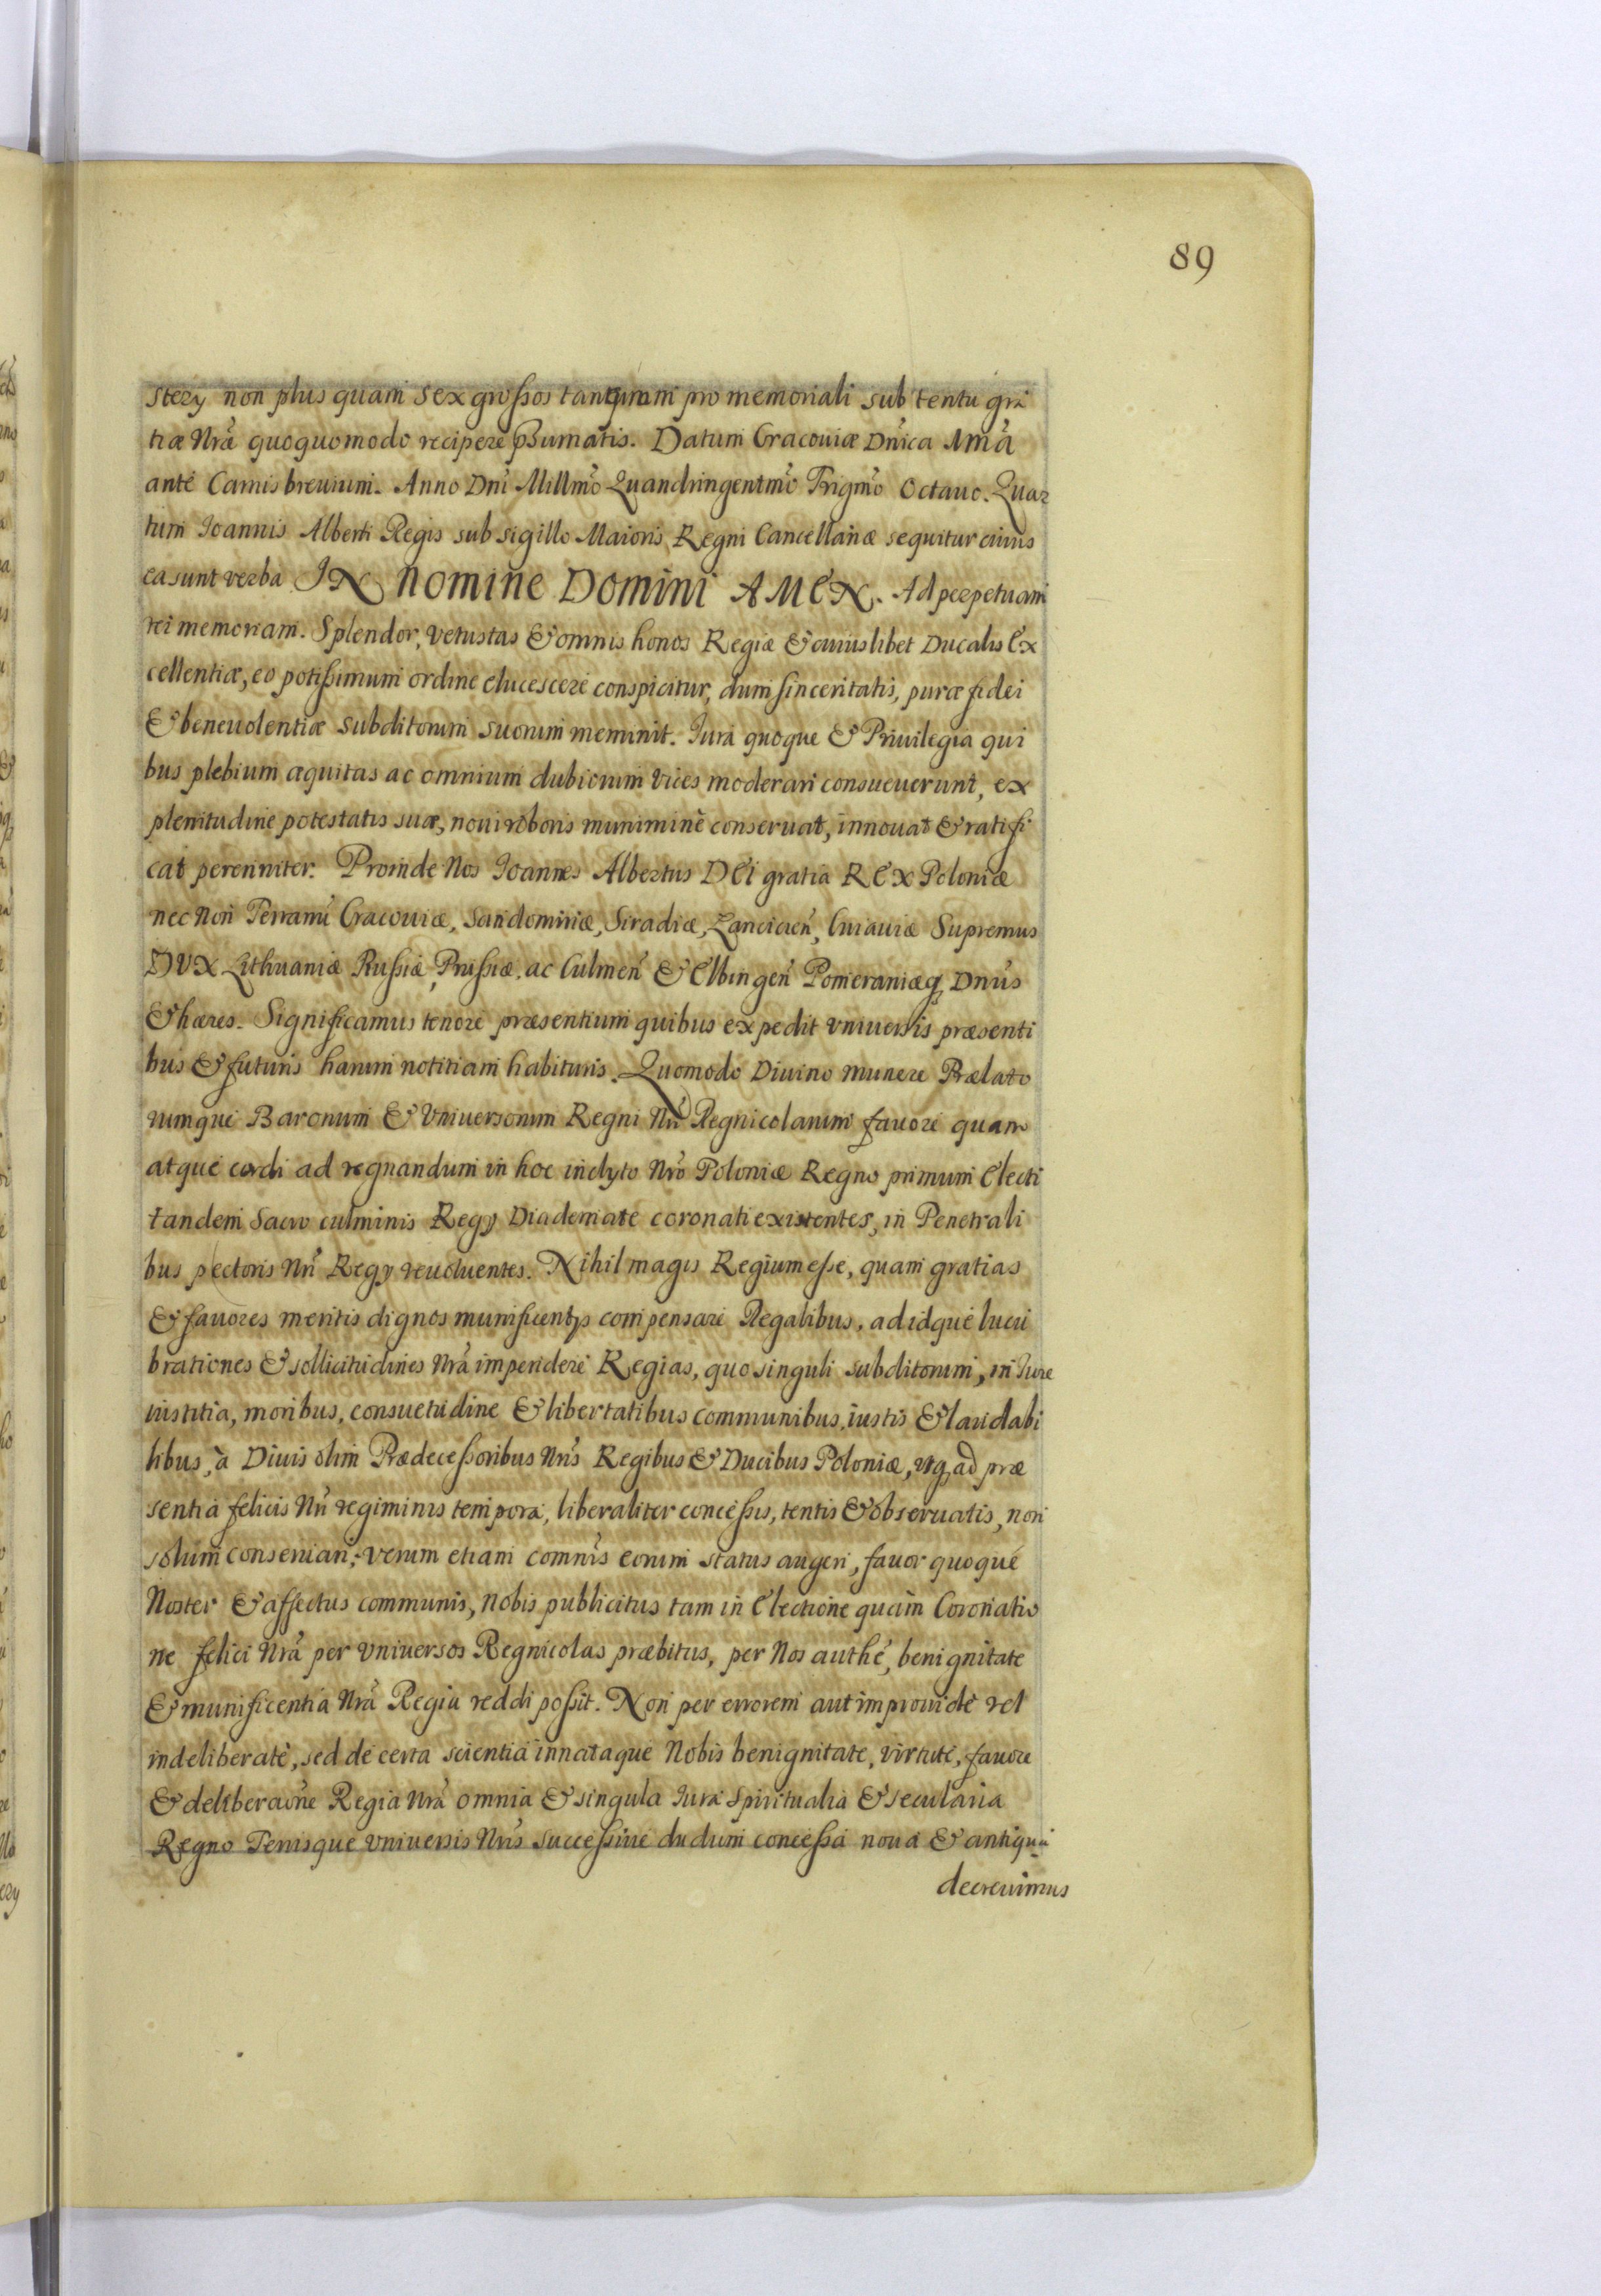 89
stery non plus quam sex grossos tantum pro memoriali sub tentu gra
tiæ Nrã quoquomodo recipere psumatis. Datum Cracouiæ Dnica
ante Carnis breuium. Anno Dni Millmo Quandringentmo Trigmo Octauo. Quar
tum Ioannis Alberti Regis sub sigillo Maioris Regni Cancellariæ sequitur cuius
ea sunt verba IN NOMINE DOMINI AMEN. Ad perpetuam
rei memoriam. Splendor, vetustas & omnis honos Regiæ & cuiuslibet Ducalis Ex
cellentiæ, eo potissimum ordine elucescere conspicitur, dum sinceritatis, puræ fidei
& beneuolentiæ subditorum suorum meminit. Iura quoque & Priuilegia qui
bus plebium æquitas ac omnium dubiorum vices moderari consueuerunt, ex
plenitudine potestatis suæ, noui roboris munimine conseruat, innouat & ratifi
cat perenniter. Proinde Nos Ioannes Albertus DEI gratia REX Poloniæ
nec non Terrarũ Cracouiæ, Sandomiriæ, Siradiæ, Lancicieñ, Cuiauiæ Supremus
DVX Lithuaniæ Russiæ, Prussiæ, ac Culmeñ & Elbingeñ Pomeraniæq Dnus
& hæres. Significamus tenore præsentium quibus expedit vniuersis præsenti
bus & futuris harum notitiam habituris. Quomodo Diuino munere Prælato
rumque Baronum & Vniuersorum Regni Nri Regnicolarum fauore quam
atque cordi ad regnandum in hoc inclyto Nro Poloniæ Regno primum Electi
tandem Sacro culminis Regy Diademate coronati existentes, in Penetrali
bus pectoris Nri Regy reuoluentes. Nihil magis Regium esse, quam gratias
& fauores meritis dignos munificentys compensare Regalibus, ad idque lucu
brationes & sollicitudines Nrã impendere Regias, quo singuli subditorum, in Iure
iustitia, moribus, consuetudine & libertatibus communibus, iustis & laudabi
libus, à Diuis olim Prædecessoribus Nris Regibus & Ducibus Poloniæ, vsq ad præ
sentia felicis Nri regiminis tempora, liberaliter concessis, tentis & obseruatis, non
solum conseruari, verum etiam comnis eorum status augeri, fauor quoque
Noster & affectus communis, nobis publicitus tam in Electione quàm Coronatio
ne felici Nrã per vniuersos Regnicolas præbitus, per Nos authé, benignitate
& munificentia Nrã Regia reddi possit. Non per errorem aut improuidè vel
indeliberatè, sed de certa scientia innataque Nobis benignitate, virtute, fauore
& deliberaone Regia Nrã omnia & singula Iura Spiritualia & secularia
Regno Terrisque vniuersis Nris successiue dudum concessa noua & antiqua
decreuimus